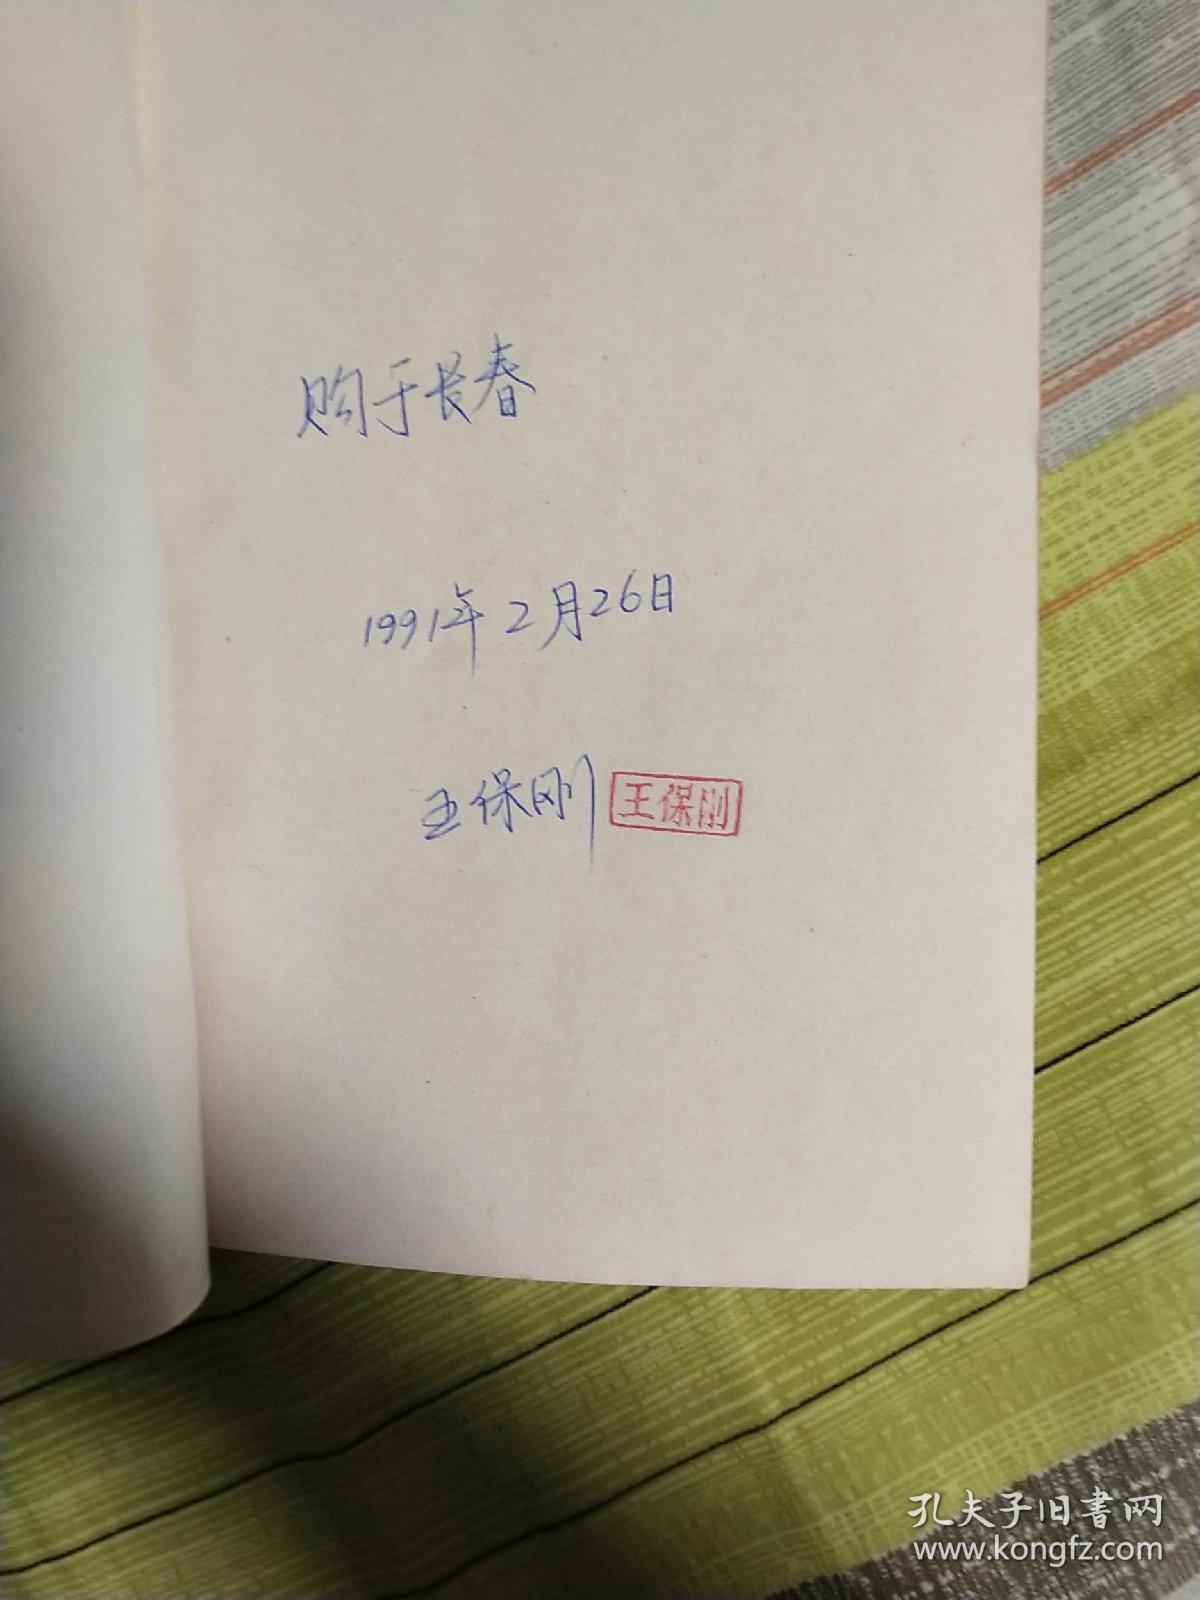 购于长春
1991年2月26日
王保刚 王保刚
孔夫子旧书网
www.kongfz.com